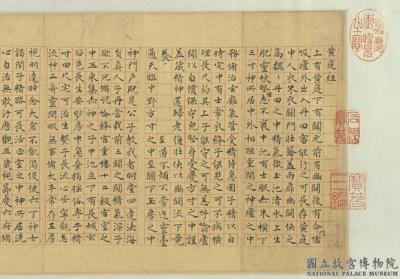 黃庭經
上有黃庭下有關元前有幽關後有命
廬外出入丹田審能行之可長存黃庭
中人衣朱衣關門壯籥蓋兩扉幽闕俠之
高巍巍丹田之中精氣微玉池清水上生
肥靈根堅志不衰中池有士服赤朱橫下
三寸神所居中外相距重閉之神廬之中
務脩治玄氣管受精符急固子精以自
持宅中有士常衣絳子能見之可不病橫
理長尺約其上子能守之可無恙呼噏廬
間以自償保守完堅身受慶方寸之中謹
蓋藏精神還歸老復壯俠以幽闕流下竟
養至道不煩不旁迕靈臺
通天臨中野方寸之中至關下玉房之中
神門戶既是公子教我者明堂四達法海
真人子丹當我前三關之間精氣深子
欲不死脩崑崙絳宮重樓十二級宮室之
中五采集赤神之子中池立下有長城玄
谷邑長生要眇房中急棄捐淫欲專子精
寸田尺宅可治生繫子長流心安寧觀志
流神三奇靈閑暇無事脩太平常存玉房
視明達時念大倉不飢渴役使六丁神女
謁閉子精路可長活正室之中神所居洗
心自治無敢汙歷觀五藏視節度六府脩
國立故宮博物院
NATIONAL PALACE MUSEUM